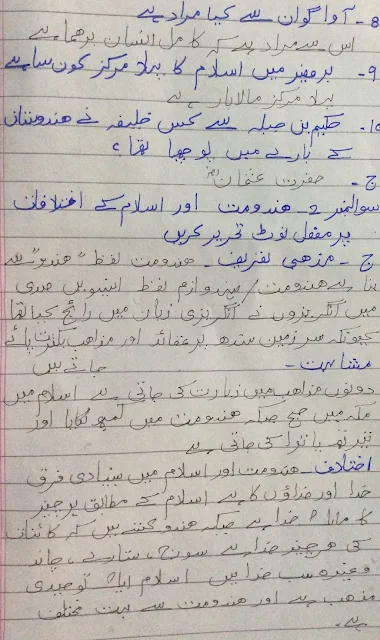 8- آواگوان سے کیا مراد ہے
اس سے مراد ہے کہ کامل انسان برھما ہے
9- برصغیر میں اسلام کا پہلا مرکز کون سا ہے
پہلا مرکز مالابار ہے
10- حکیم بن جبلہ سے کس خلیفہ نے ھندوستان
کے بارے میں پوچھا تھا؟
ج- حضرت عثمان
سوالنمبر 2- ھندومت اور اسلام کے اختلافات
پر مفصل نوٹ تحریر کریں
ج- مذھبی تعریف- ھندومت لفظ "ھندو" سے
بنا ہے ھندومت / ہندوازم لفظ انیسویں صدی
میں انگریزوں نے انگریزی زبان میں رائج کیا تھا
کیونکہ سرزمین سندھ پر عقائد اور مذاھب بکثرت پائے
جاتے ہیں
مشابہت-
دونوں مذاھب میں زیارت کی جاتی ہے اسلام میں
مکہ میں حج جبکہ ھندومت میں کمبھ میلا اور
تیرتھ یاترا کی جاتی ہے
اختلاف- ھندومت اور اسلام میں بنیادی فرق
خدا اور خداؤں کا ہے اسلام کے مطابق ہر چیز
کا مالک خدا ہے جبکہ ھندو کہتے ہیں کہ کائنات
کی ہر چیز خدا ہے سورج، ستارے، چاند
وغیرہ سب خدا ہیں اسلام ایک توحیدی
مذھب ہے اور ھندومت سے بہت مختلف
ہے-